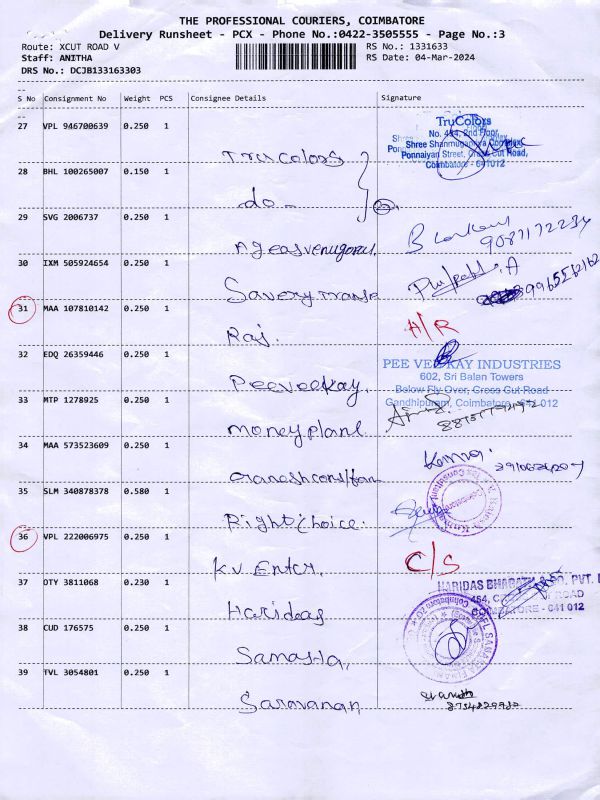 THE PROFESSIONAL COURIERS, COIMBATORE
Delivery Runsheet - PCX - Phone No.:0422-3505555 - Page No.:3
Route: XCUT ROAD V
RS No.: 1331633
Staff: ANITHA
RS Date: 04-Mar-2024
DRS No.: DCJB133163303
S No Consignment No Weight PCS Consignee Details Signature
27 VPL 946700639 0.250 1
TruColors
TruColors
No. 2nd Floor,
Shree Shanmugananda Complex
Ponnaiyan Street, Cross Cut Road,
Coimbatore - 641012
28 BHL 100265007 0.150 1
do
29 SVG 2006737 0.250 1
9087172234
30 IXM 505924654 0.250 1
Savery
31 MAA 107810142 0.250 1
Raj.
A/R
32 EDQ 26359446 0.250 1
Peeveekay.
PEE VEEKAY INDUSTRIES
602, Sri Balan Towers
Below Fly Over, Cross Cut Road
Gandhipuram, Coimbatore - 641 012
33 MTP 1278925 0.250 1
moneyplant
34 MAA 573523609 0.250 1
35 SLM 340878378 0.580 1
Right choice.
36 VPL 222006975 0.250 1
K.V Enter.
C/S
37 OTY 3811068 0.230 1
Haridas
HARIDAS BHARATH & CO. PVT. L
ROAD
COIMBATORE - 641 012
38 CUD 176575 0.250 1
39 TVL 3054801 0.250 1
Saravanan